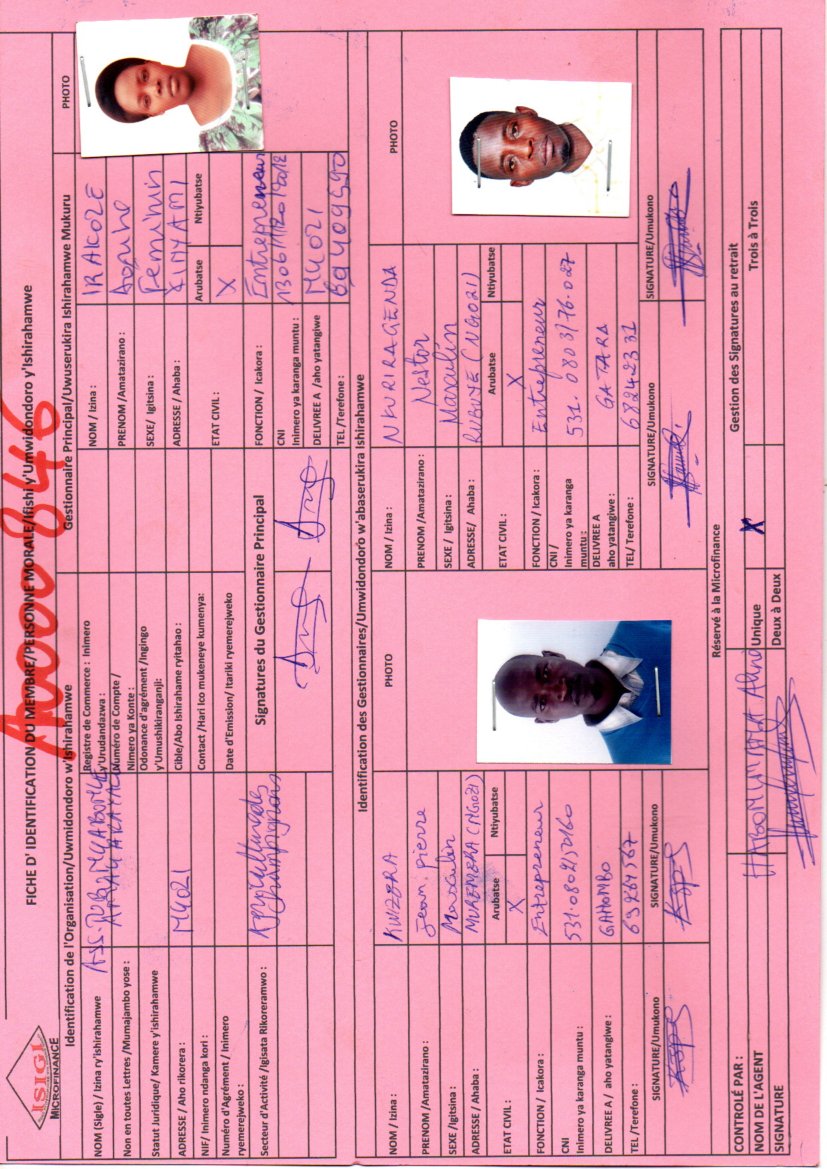 ISIGI
MICROFINANCE
A000846
FICHE D' IDENTIFICATION DU MEMBRE/PERSONNE MORALE/Ifishi y'Umwidondoro y'Ishirahamwe
Identification de l'Organisation/Uwmidondoro w'Ishirahamwe
NOM (Sigle) / Izina ry'ishirahamwe
ASS.
Non en toutes Lettres /Mumajambo yose :
Statut Juridique/ Kamere y'ishirahamwe
ADRESSE / Aho rikorera :
NGOZI
NIF/ Inimero ndanga kori :
Numéro d'Agrément / Inimero
ryemerejweko :
Secteur d'Activité /Igisata Rikoreramwo :
Agriculture des
champignons
Registre de Commerce : Inimero
y'Urudandazwa :
Numéro de Compte /
Nimero ya Konte :
Odonance d'agrément /Ingingo
y'Umushikiranganji:
Cible/Abo Ishirahame ryitahao :
Contact /Hari Ico mukeneye kumenya:
Date d'Emission/ Itariki ryemerejweko
Signatures du Gestionnaire Principal
Gestionnaire Principal/Uwuserukira Ishirahamwe Mukuru
PHOTO
NOM / Izina :
IRAKOZE
PRENOM /Amatazirano :
SEXE/ Igitsina :
Feminin
ADRESSE / Ahaba :
KINYAMI
ETAT CIVIL :
Arubatse
Ntiyubatse
X
FONCTION / Icakora :
Entrepreneur
CNI
Inimero ya karanga muntu :
DELIVREE A /aho yatangiwe
NGOZI
TEL /Terefone :
69409590
Identification des Gestionnaires/Umwidondoro w'abaserukira Ishirahamwe
NOM / Izina :
KWIZERA
PHOTO
PRENOM /Amatazirano :
Jean pierre
SEXE /Igitsina :
Masculin
ADRESSE / Ahaba :
MUREMERA (NGOZI)
ETAT CIVIL :
Arubatse
Ntiyubatse
X
FONCTION / Icakora :
Entrepreneur
CNI
Inimero ya karanga muntu :
531.0802/50160
DELIVREE A / aho yatangiwe :
GAHOMBO
TEL /Terefone :
69264567
SIGNATURE/Umukono
SIGNATURE/Umukono
NOM / Izina :
NKURIRAGENDA
PHOTO
PRENOM /Amatazirano :
Nestor
SEXE / Igitsina :
Masculin
ADRESSE/ Ahaba :
RUBUYE (NGOZI)
ETAT CIVIL :
Arubatse
Ntiyubatse
X
FONCTION / Icakora :
Entrepreneur
CNI /
Inimero ya karanga
muntu :
531.0803/76.027
DELIVREE A
aho yatangiwe :
GATARA
TEL/ Terefone :
68242331
SIGNATURE/Umukono
SIGNATURE/Umukono
Réservé à la Microfinance
CONTROLÉ PAR :
NOM DE L'AGENT
HABOMIMANA Aline
SIGNATURE
Gestion des Signatures au retrait
Unique
X
Trois à Trois
Deux à Deux